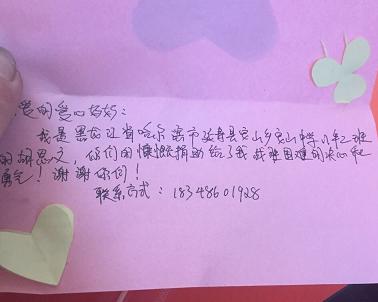 亲爱的爱心妈妈：
我是黑龙江省哈尔滨市延寿县安山乡安山中学八年二班
的胡思文，你们的慷慨捐助给了我战胜困难的决心和
勇气！谢谢你们！
联系方式：18348601928